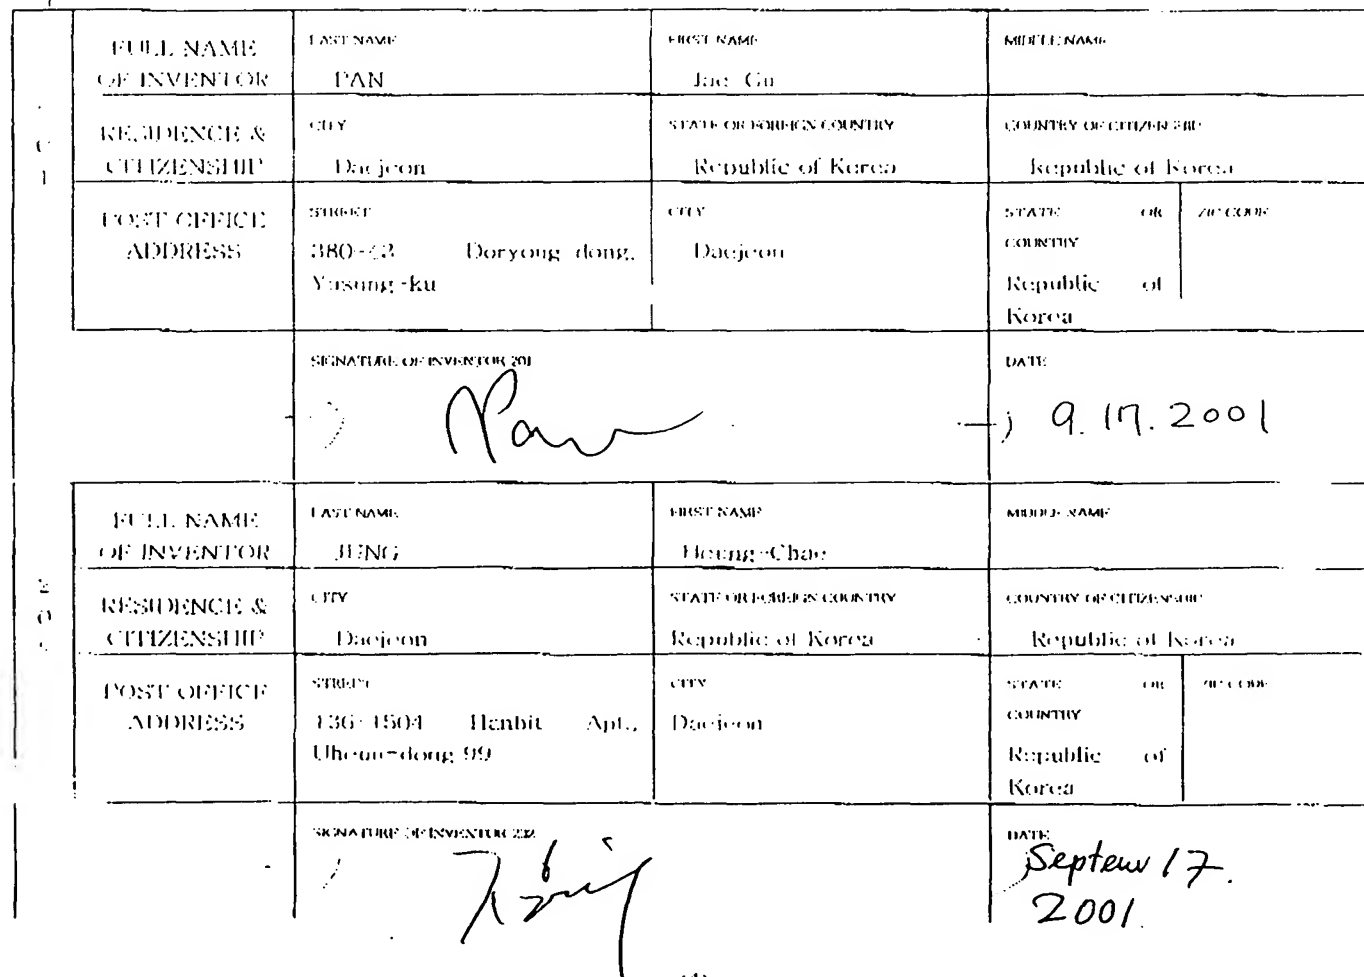 FULL NAME OF INVENTOR
LAST NAME
PAN
FIRST NAME
Jae Gu
MIDDLE NAME
RESIDENCE & CITIZENSHIP
CITY
Daejeon
STATE OR FOREIGN COUNTRY
Republic of Korea
COUNTRY OF CITIZENSHIP
Republic of Korea
POST OFFICE ADDRESS
STREET
Doryong dong,
Yusung-ku
CITY
Daejeon
STATE OR
COUNTRY
Republic of
Korea
ZIP CODE
SIGNATURE OF INVENTOR 201
Pan
DATE
9.17.2001
FULL NAME OF INVENTOR
LAST NAME
JUNG
FIRST NAME
Heung-Chae
MIDDLE NAME
RESIDENCE & CITIZENSHIP
CITY
Daejeon
STATE OR FOREIGN COUNTRY
Republic of Korea
COUNTRY OF CITIZENSHIP
Republic of Korea
POST OFFICE ADDRESS
STREET
Hanbit Apt.,
99
CITY
Daejeon
STATE OR
COUNTRY
Republic of
Korea
ZIP CODE
SIGNATURE OF INVENTOR
DATE
Septem 17.
2001.